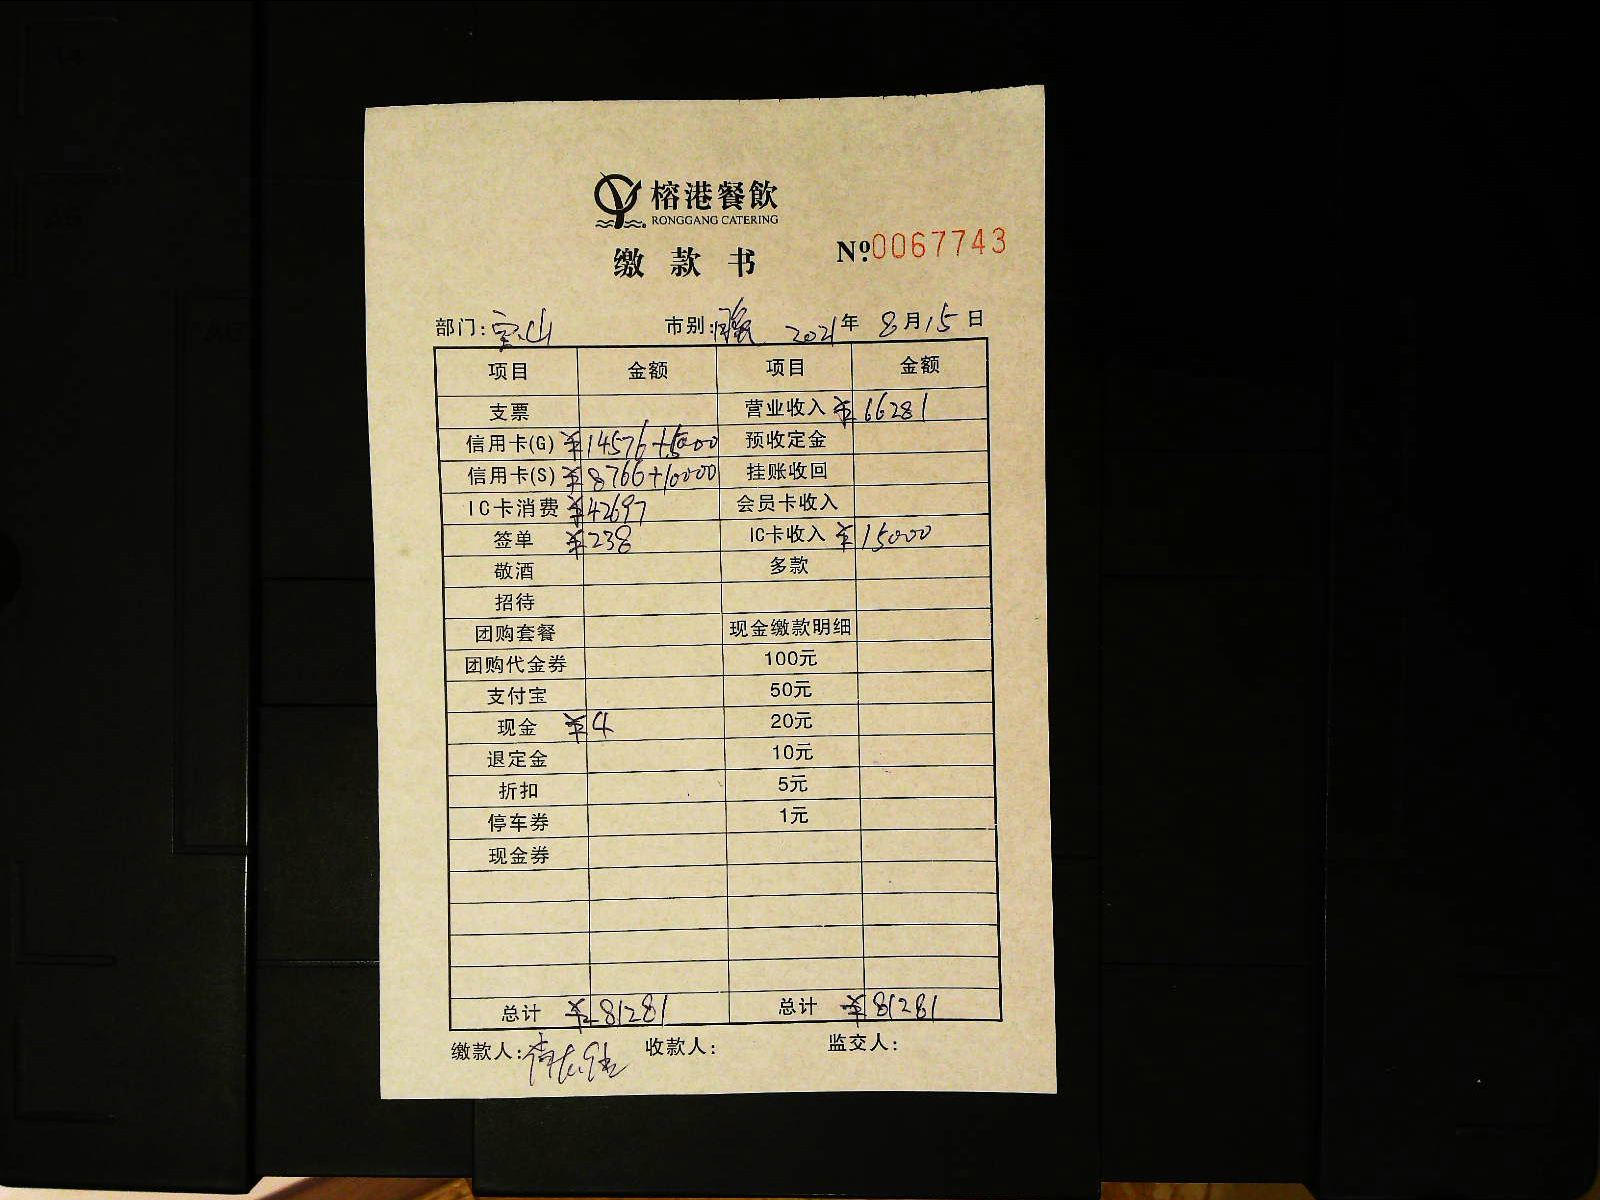 榕港餐飲
RONGGANG CATERING
缴款书 №0067743
部门:宝山 市别: 2021年8月15日
项目 金额 项目 金额
支票 营业收入 ¥66281
信用卡(G) ¥14576+5000 预收定金
信用卡(S) ¥8766+10000 挂账收回
IC卡消费 ¥42697 会员卡收入
签单 ¥238 IC卡收入 ¥15000
敬酒 多款
招待
团购套餐 现金缴款明细
团购代金券 100元
支付宝 50元
现金 ¥4 20元
退定金 10元
折扣 5元
停车券 1元
现金券
总计 ¥81281 总计 ¥81281
缴款人: 收款人: 监交人: